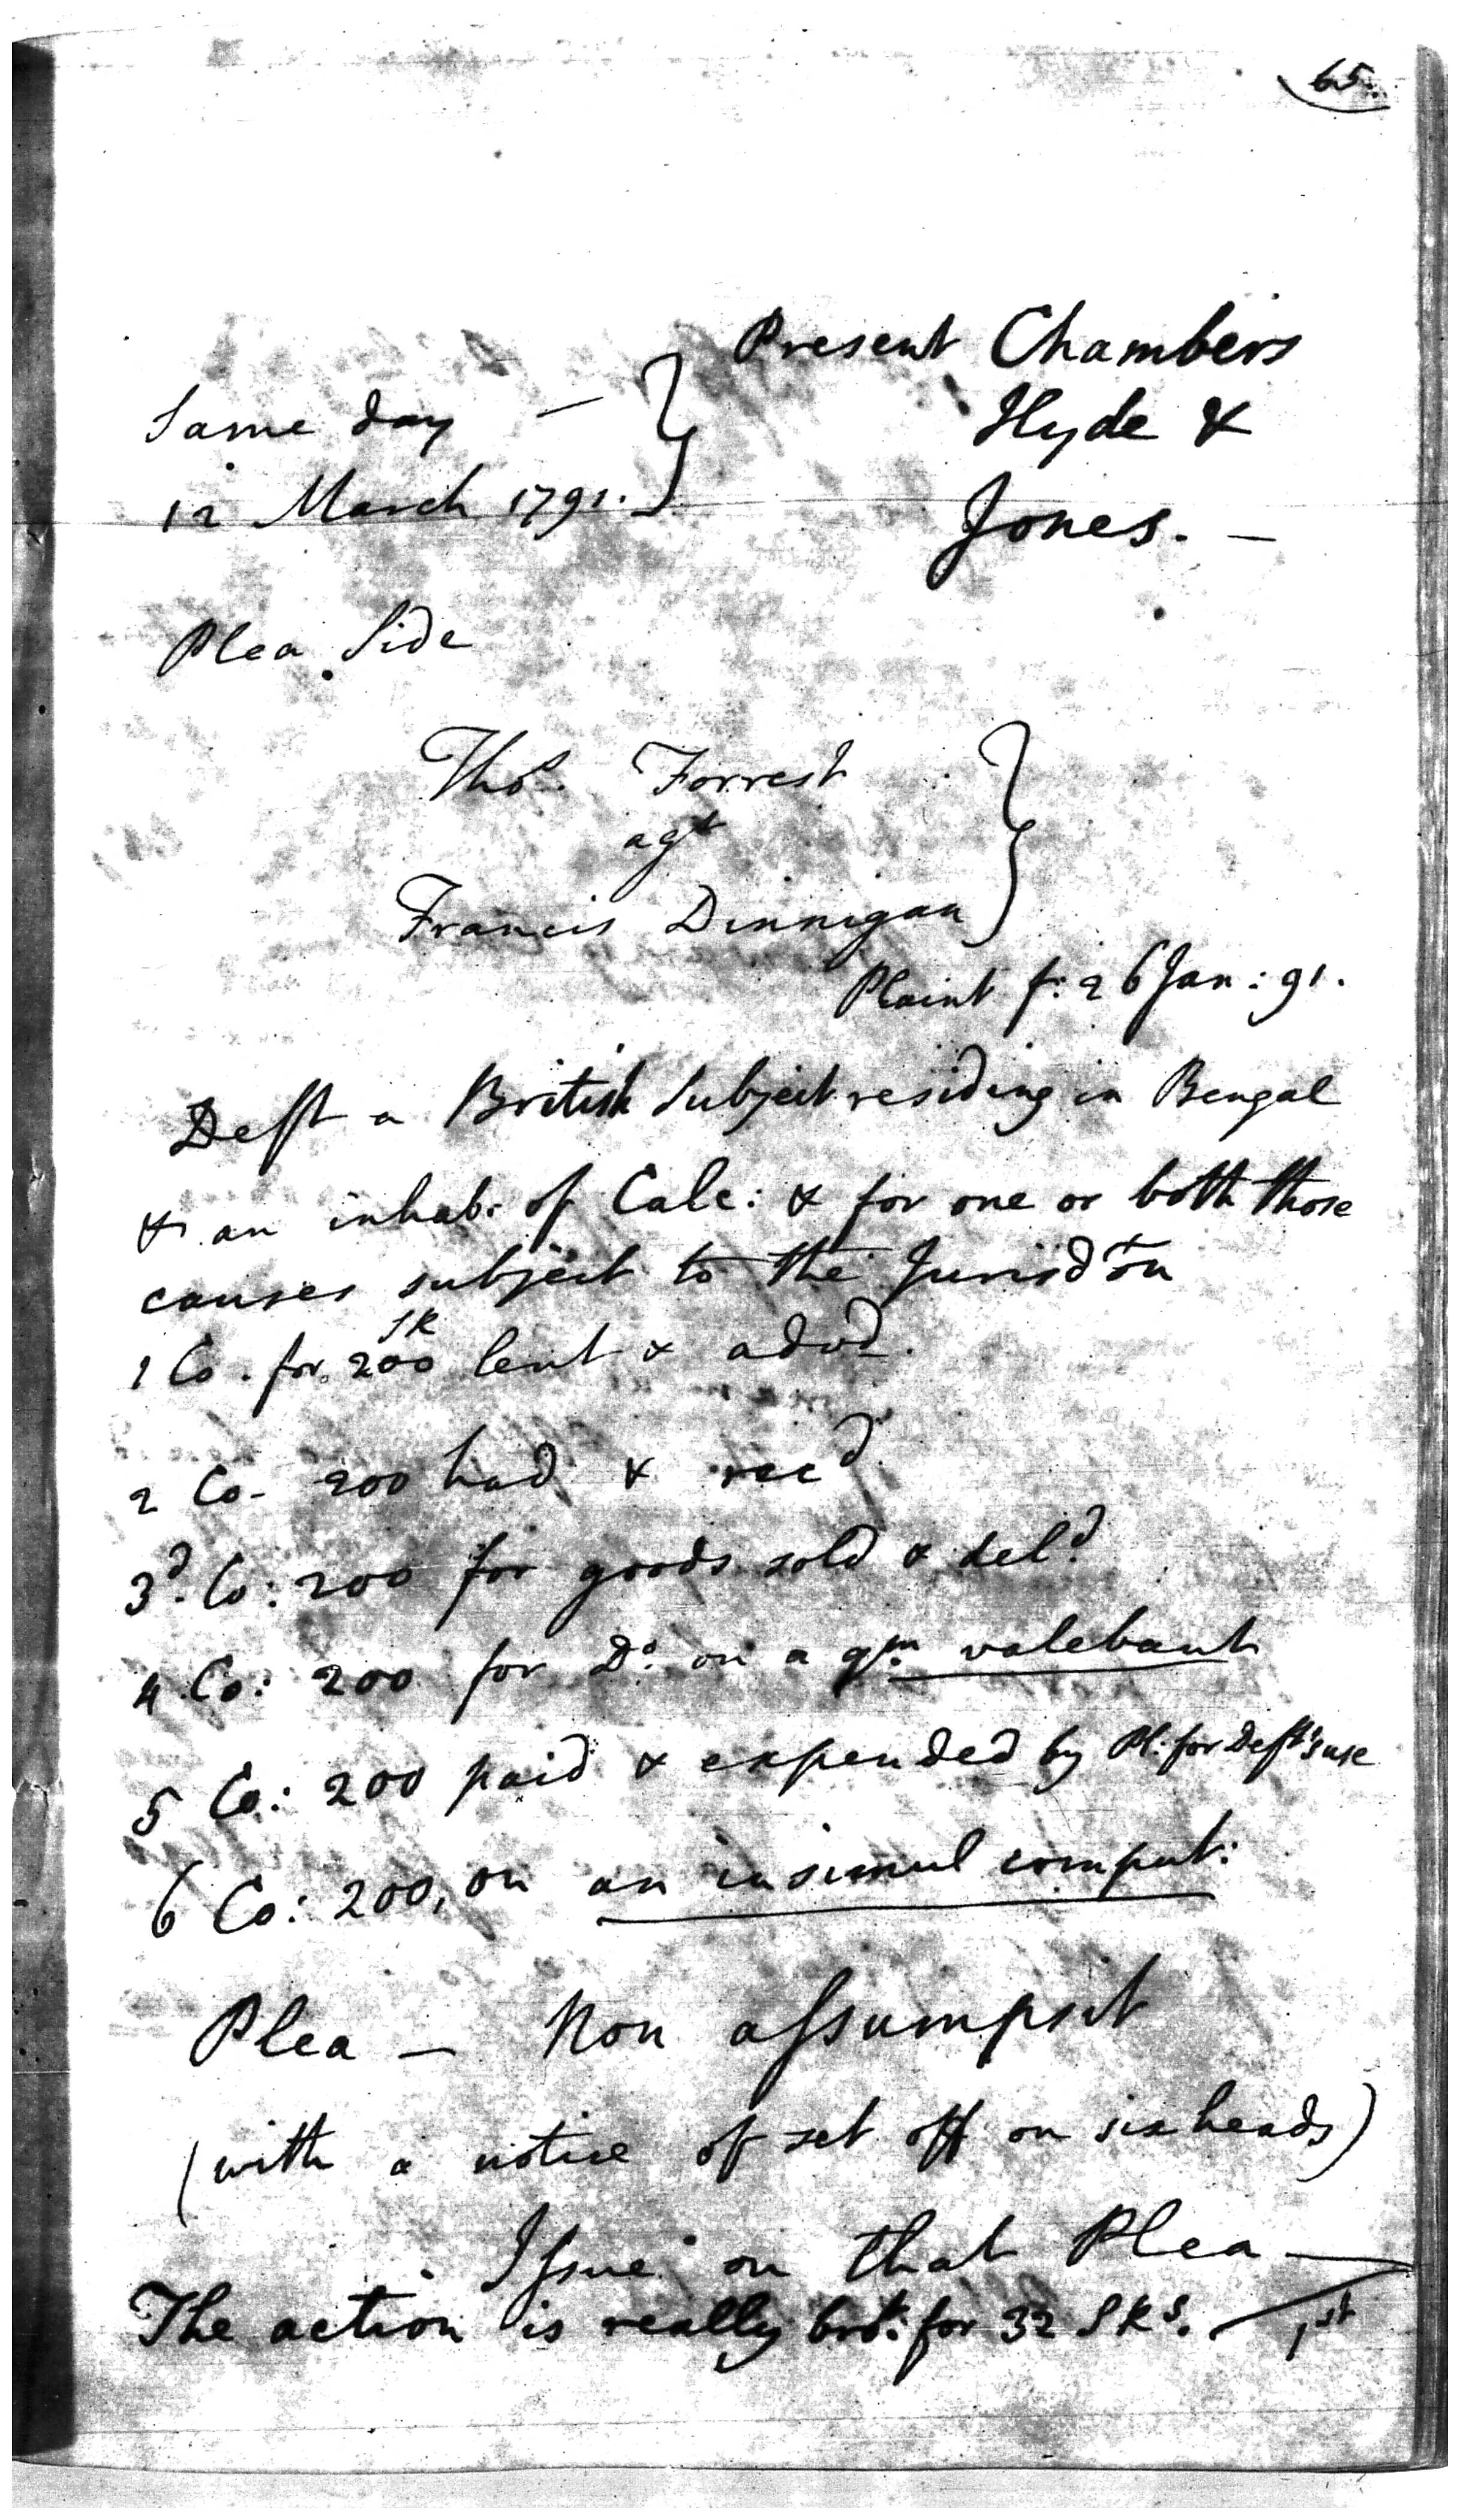 65.
Present Chambers
Same day — Hyde &
12 March 1791. Jones. —
Plea Side
Thos. Forrest
agt
Francis Dinnigan
Plaint f: 26 Jan: 91.
Deft a British Subject residing in Bengal
& an inhab: of Calc: & for one or both those
causes subject to the Jurisdtn
SR
1 Co. for 200 lent & advd.
2 Co- 200 had & recd
3d. Co: 200 for goods sold & deld.
4 Co: 200 for Do. on a qm. valebant
5 Co: 200 paid & expended by Pl: for Deft's use
6 Co: 200, on an insimul comput:
Plea — Non assumpsit
(with a notice of set off on six heads)
Issue on that Plea —
The action is really brot: for 32 SRs. — 1st